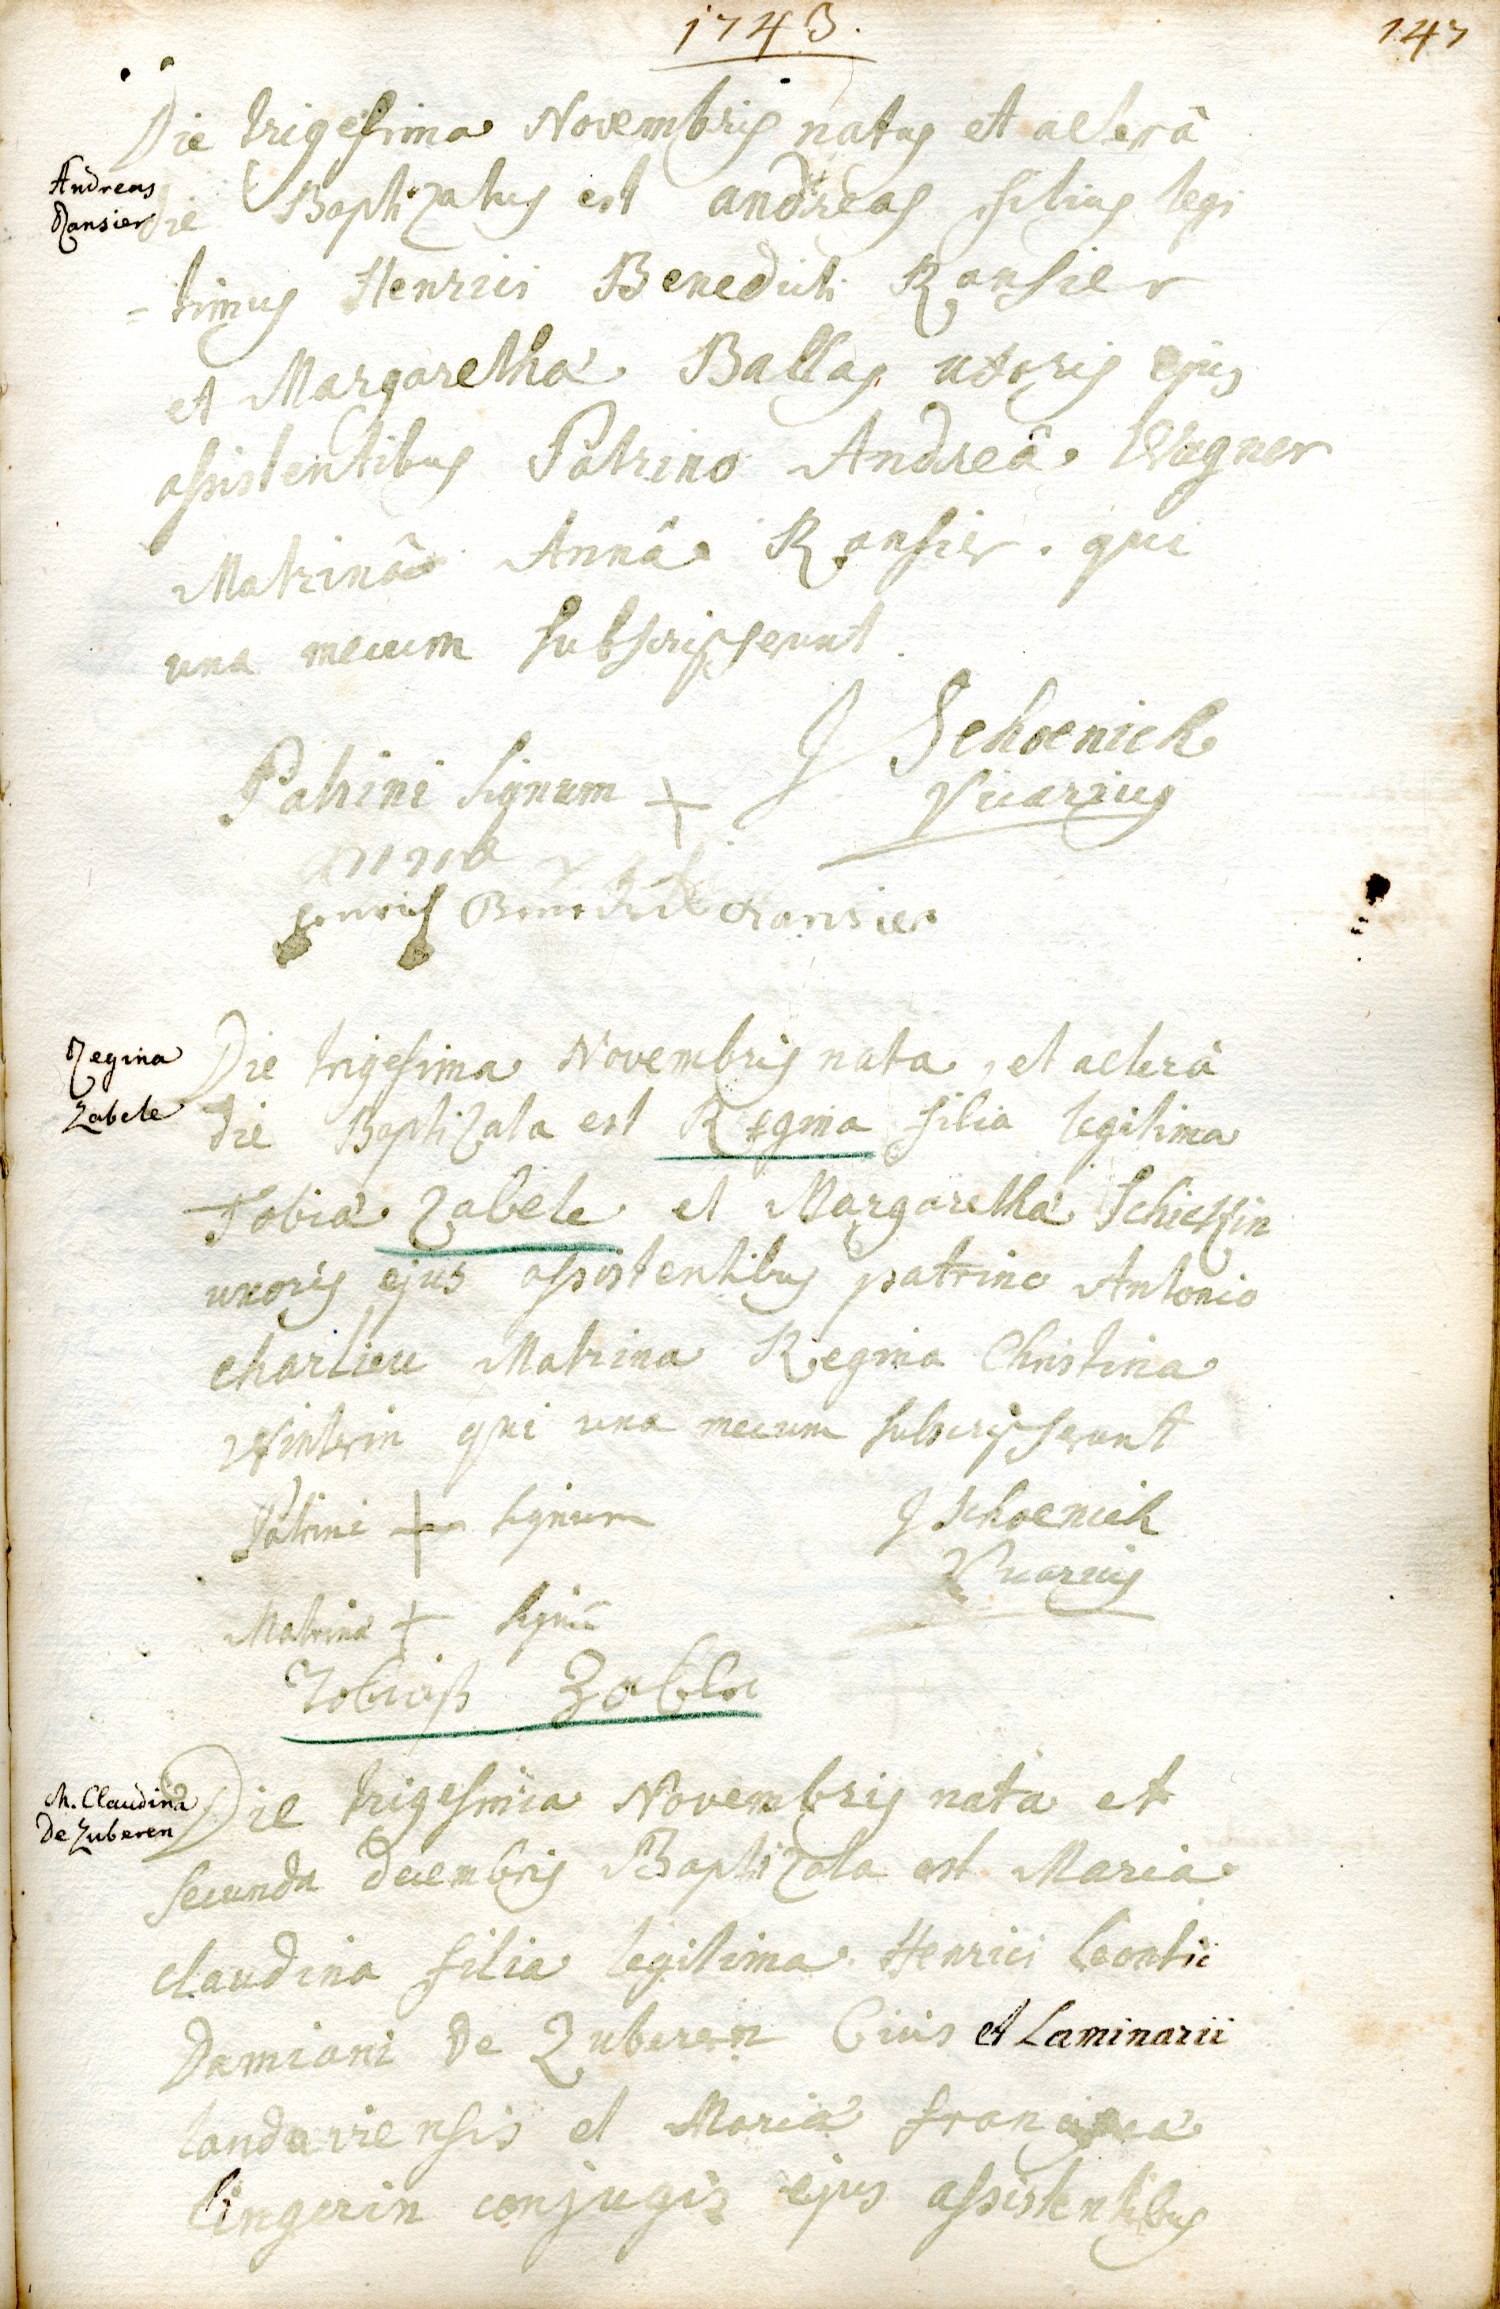 1743.
147
Die trigesima Novembris natus et alterâ
Andreas
Ransier
die Baptizatus est andreas filius legi
-timus Henrici Benedicti Ransier
et Margaretha Ballas uxoris ejus
assistentibus Patrino Andreâ Wagner
Matrinâ Annâ Ransier. qui
una mecum subscripserunt.
J Schoenick
Patrini signum +
Vicarius
anna
Benedict Ransier
Regina
Zabele
Die trigesima Novembris nata, et alterâ
die Baptizata est Regina filia legitima
Tobiæ Zabele et Margaretha Schickin
uxoris ejus assistentibus patrino Antonio
charlieu Matrina Regina Christina
Winterin qui una mecum subscripserunt
Patrini + signum
J Schoenick
Vicarius
Matrina + signũ
Tobiaß Zabele
M. Claudina
De Zuberen
Die trigesima Novembris nata et
secunda decembris Baptizata est Maria
claudina filia legitima Henrici Leontii
Damiani De Zuberen Civis et Laminarii
landaviensis et Maria francisca
Lingerin conjugis ejus assistentibus